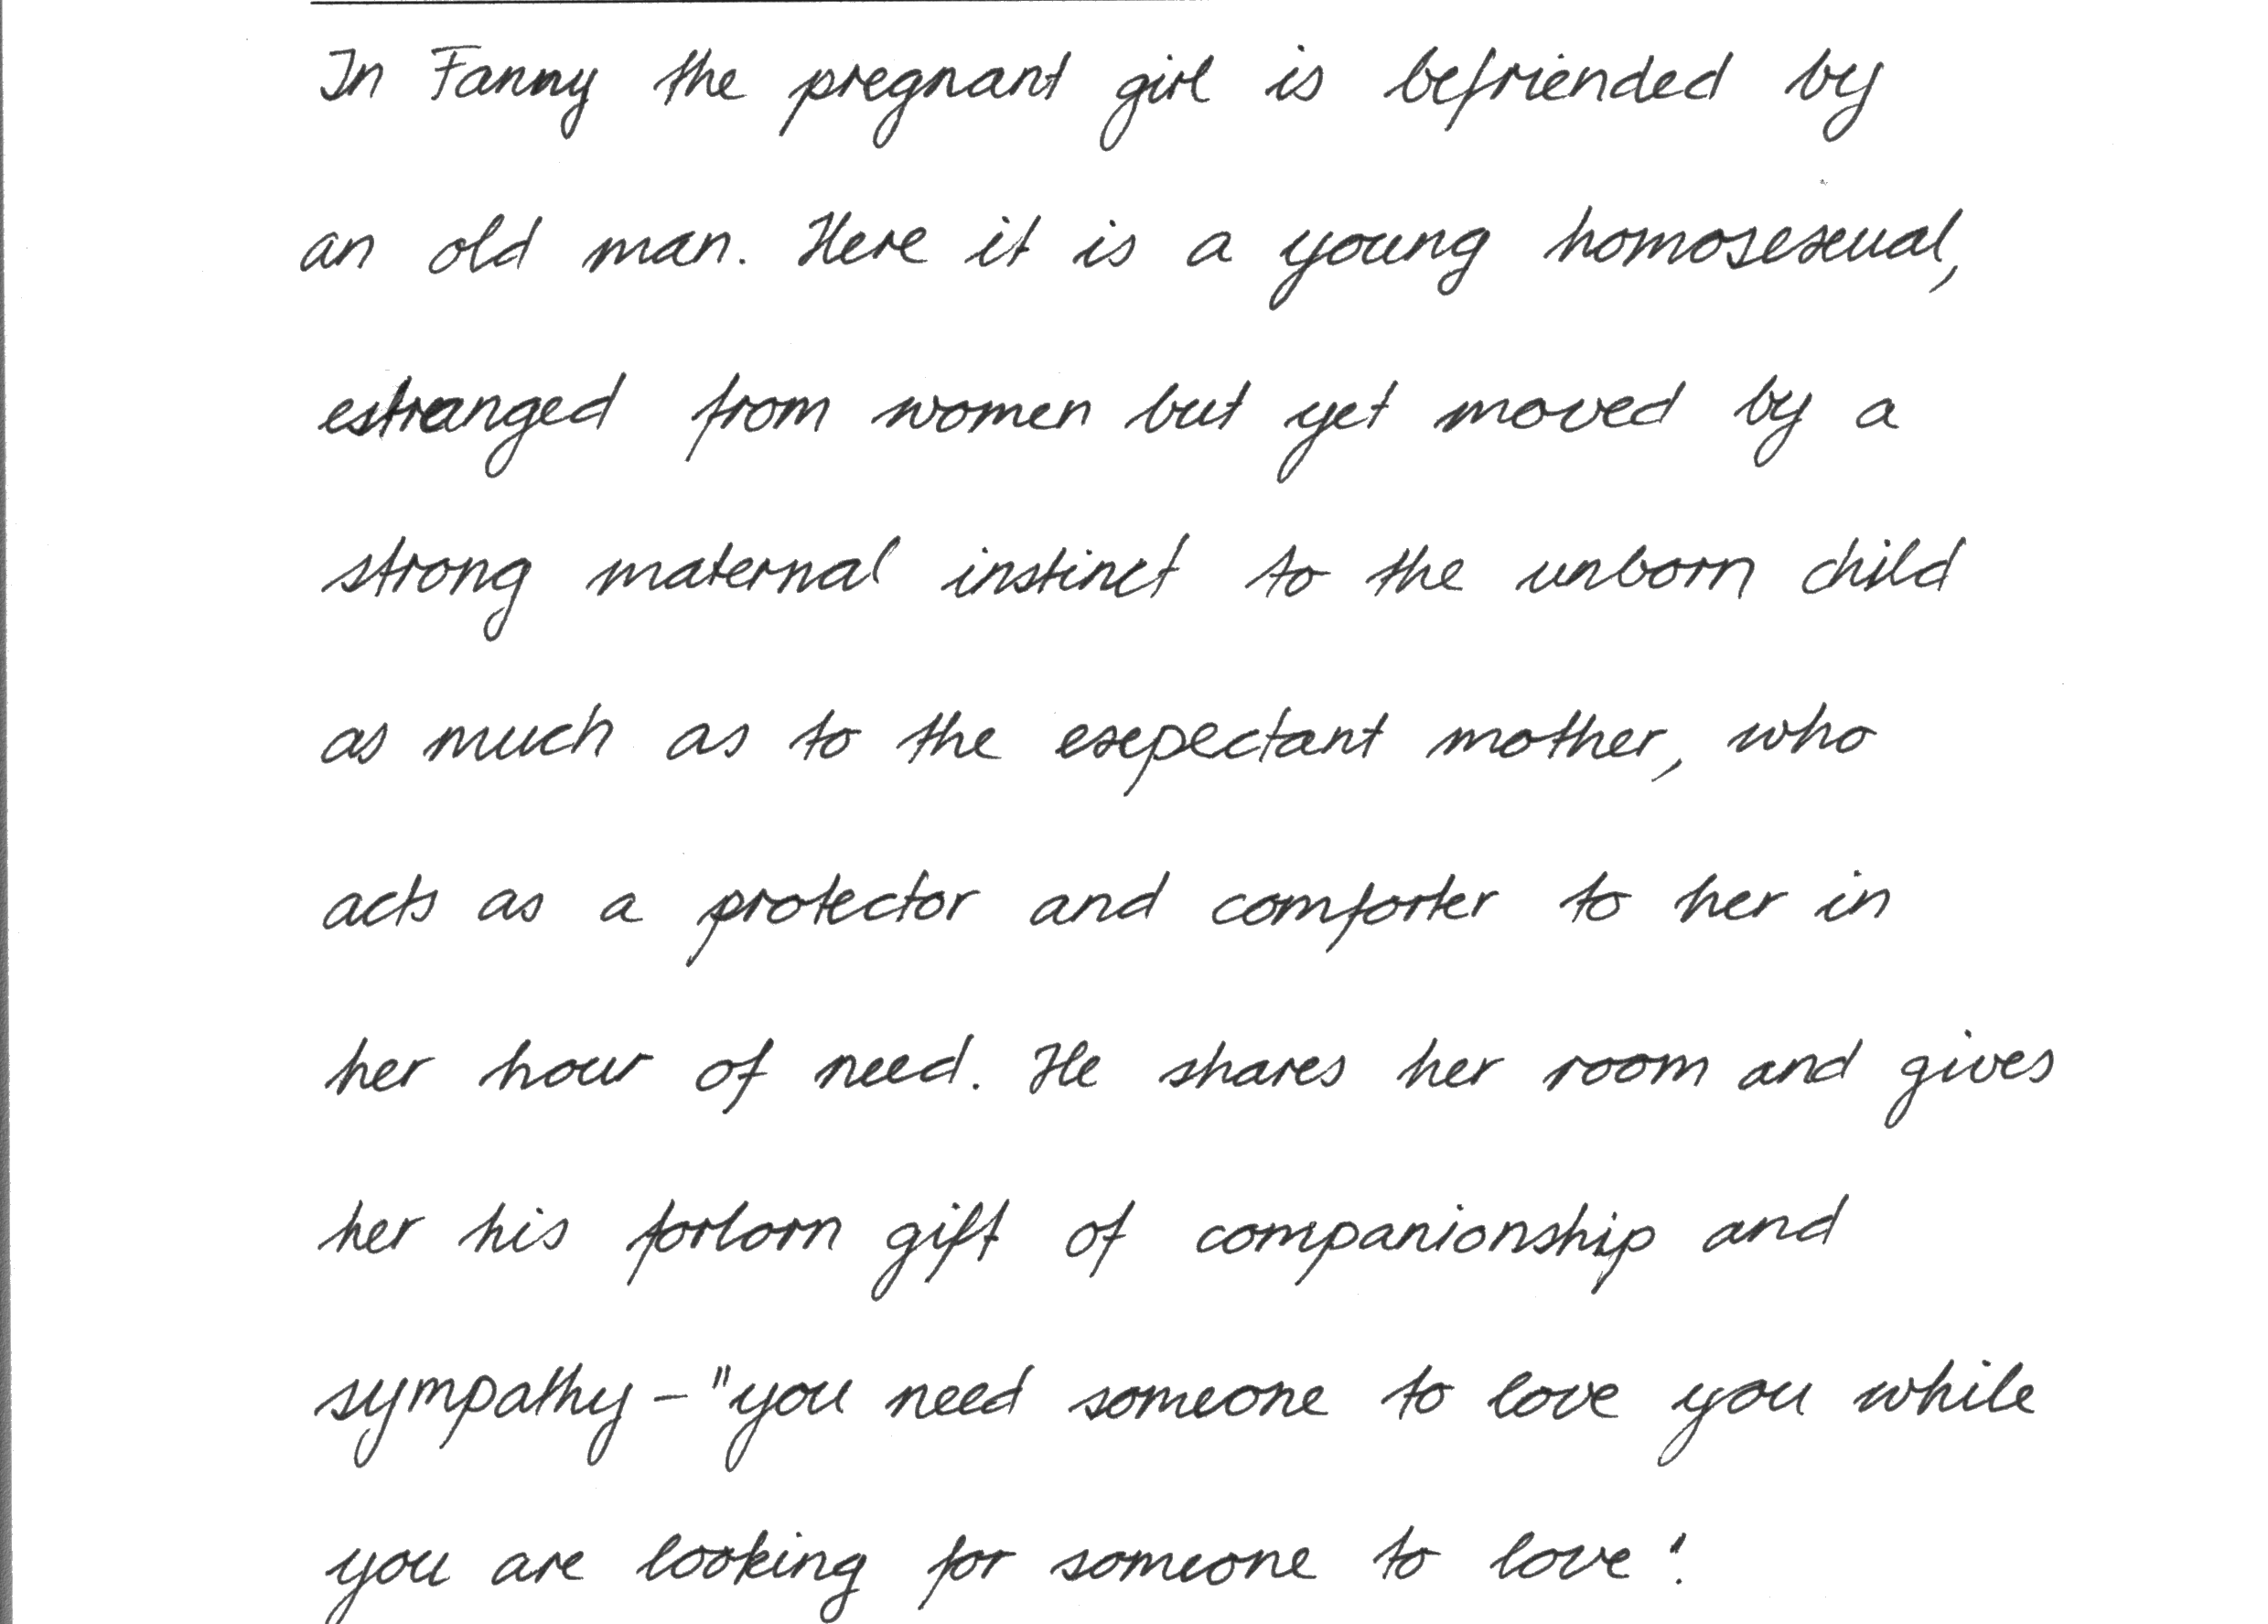 In Fanny the pregnant girl is befriended by
an old man. Here it is a young homosexual,
estranged from women but yet moved by a
strong maternal instinct to the unborn child
as much as to the expectant mother, who
acts as a protector and comforter to her in
her hour of need. He shares her room and gives
her his forlorn gift of companionship and
sympathy - "you need someone to love you while
you are looking for someone to love".